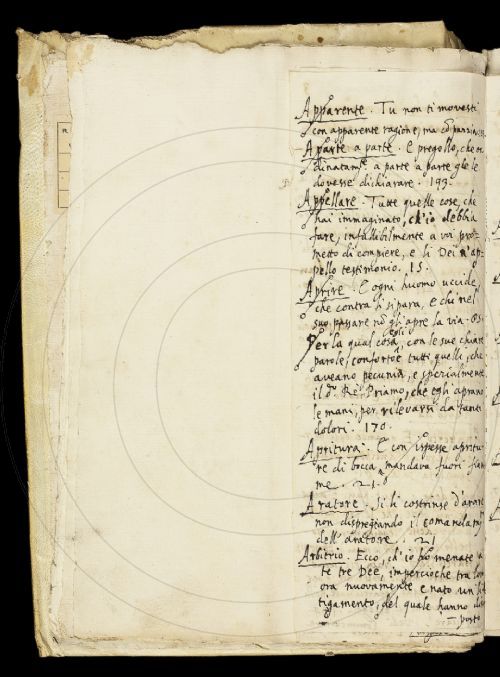 Apparente. Tu non ti movesti
con apparente ragione, ma
A parte a parte. E pregollo, che or
dinatamte a parte a parte gle le
dovesse dichiarare. 193.
Appellare. Tutte quelle cose, che
hai immaginato, ch'io debbia
fare, infallibilmente a voi pro=
metto di compiere, e li Dei n'ap=
pello testimonio. 15.
Aprire. E ogni huomo uccide,
che contra li si para, e chi nel
suo passare nō gli apre la via.
Per la qual cosa egli con le sue chiare
parole, confortoe tutti quelli, che
aveano pecunia, e spezialmente
il do. Re Priamo, che egli aprano
le mani, per rilevarsi da tanti
dolori. 170.
Apritura. E con ispesse apritu=
re di bocca mandava fuori fiam
me. 21.
Aratore. Si li costrinse d'arare
non dispregiando il
dell'aratore. 21
Arbitrio. Ecco, ch'io menate
te tre Dee, impercioche tra loro
ora nuovamente e nato un li
tigamento, del quale hanno
posto